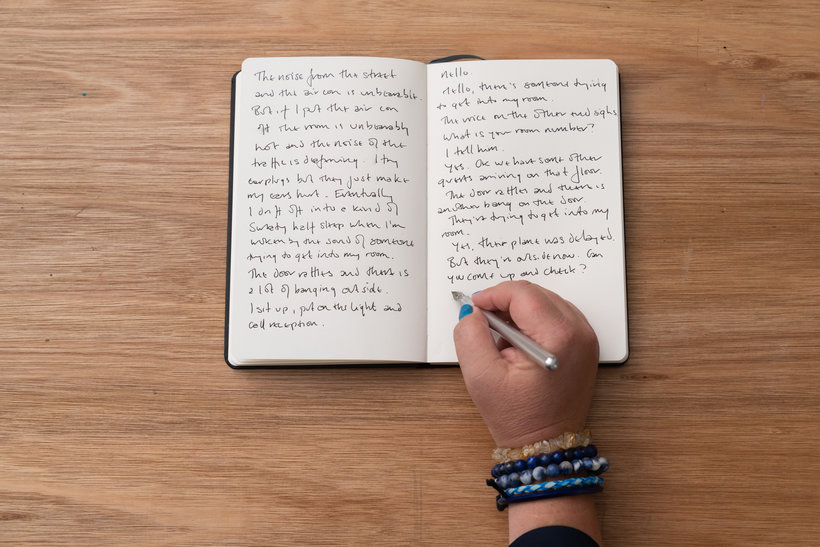 The noise from the street
and the air con is unbearable.
But if I put the air con
off the room is unbearably
hot and the noise of the
traffic is deafening. I try
earplugs but they just make
my ears hurt. Eventually
I drift off into a kind of
sweaty half sleep when I'm
woken by the sound of someone
trying to get into my room.
The door rattles and there is
a lot of banging outside.
I sit up, put on the light and
call reception.
Hello.
Hello, there's someone trying
to get into my room.
The voice on the other end sighs
what is your room number?
I tell him.
Yes. Ok we have some other
guests arriving on that floor.
The door rattles and there is
another bang on the door
They're trying to get into my
room.
Yes, their plane was delayed.
But they're outside now. Can
you come up and check?